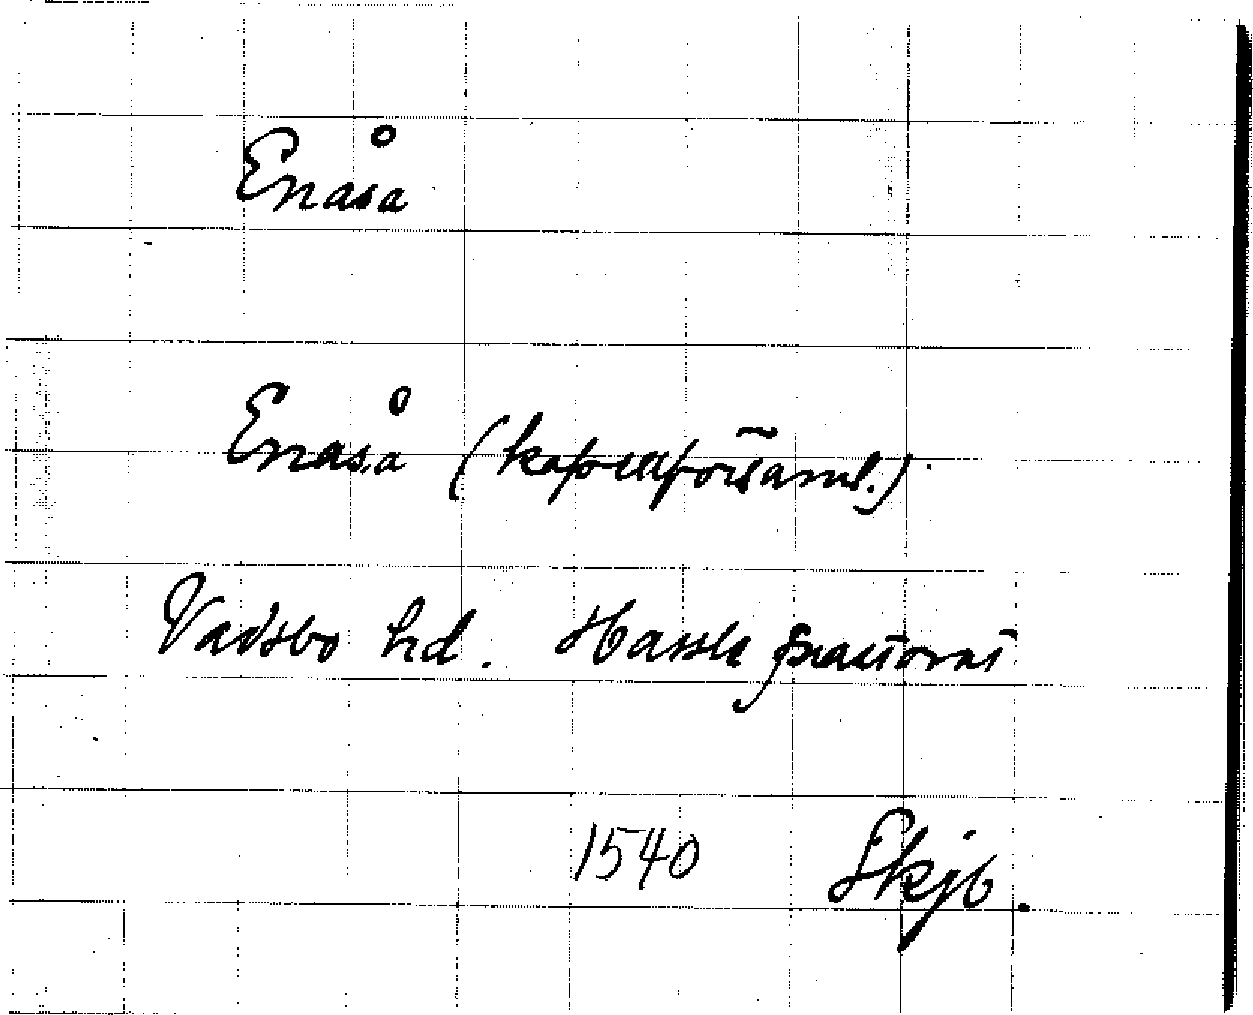 Enåsa
Enåsa (kapellförsaml.)
Vadsbo hd. Hassle pastorat
1540 Skjb.